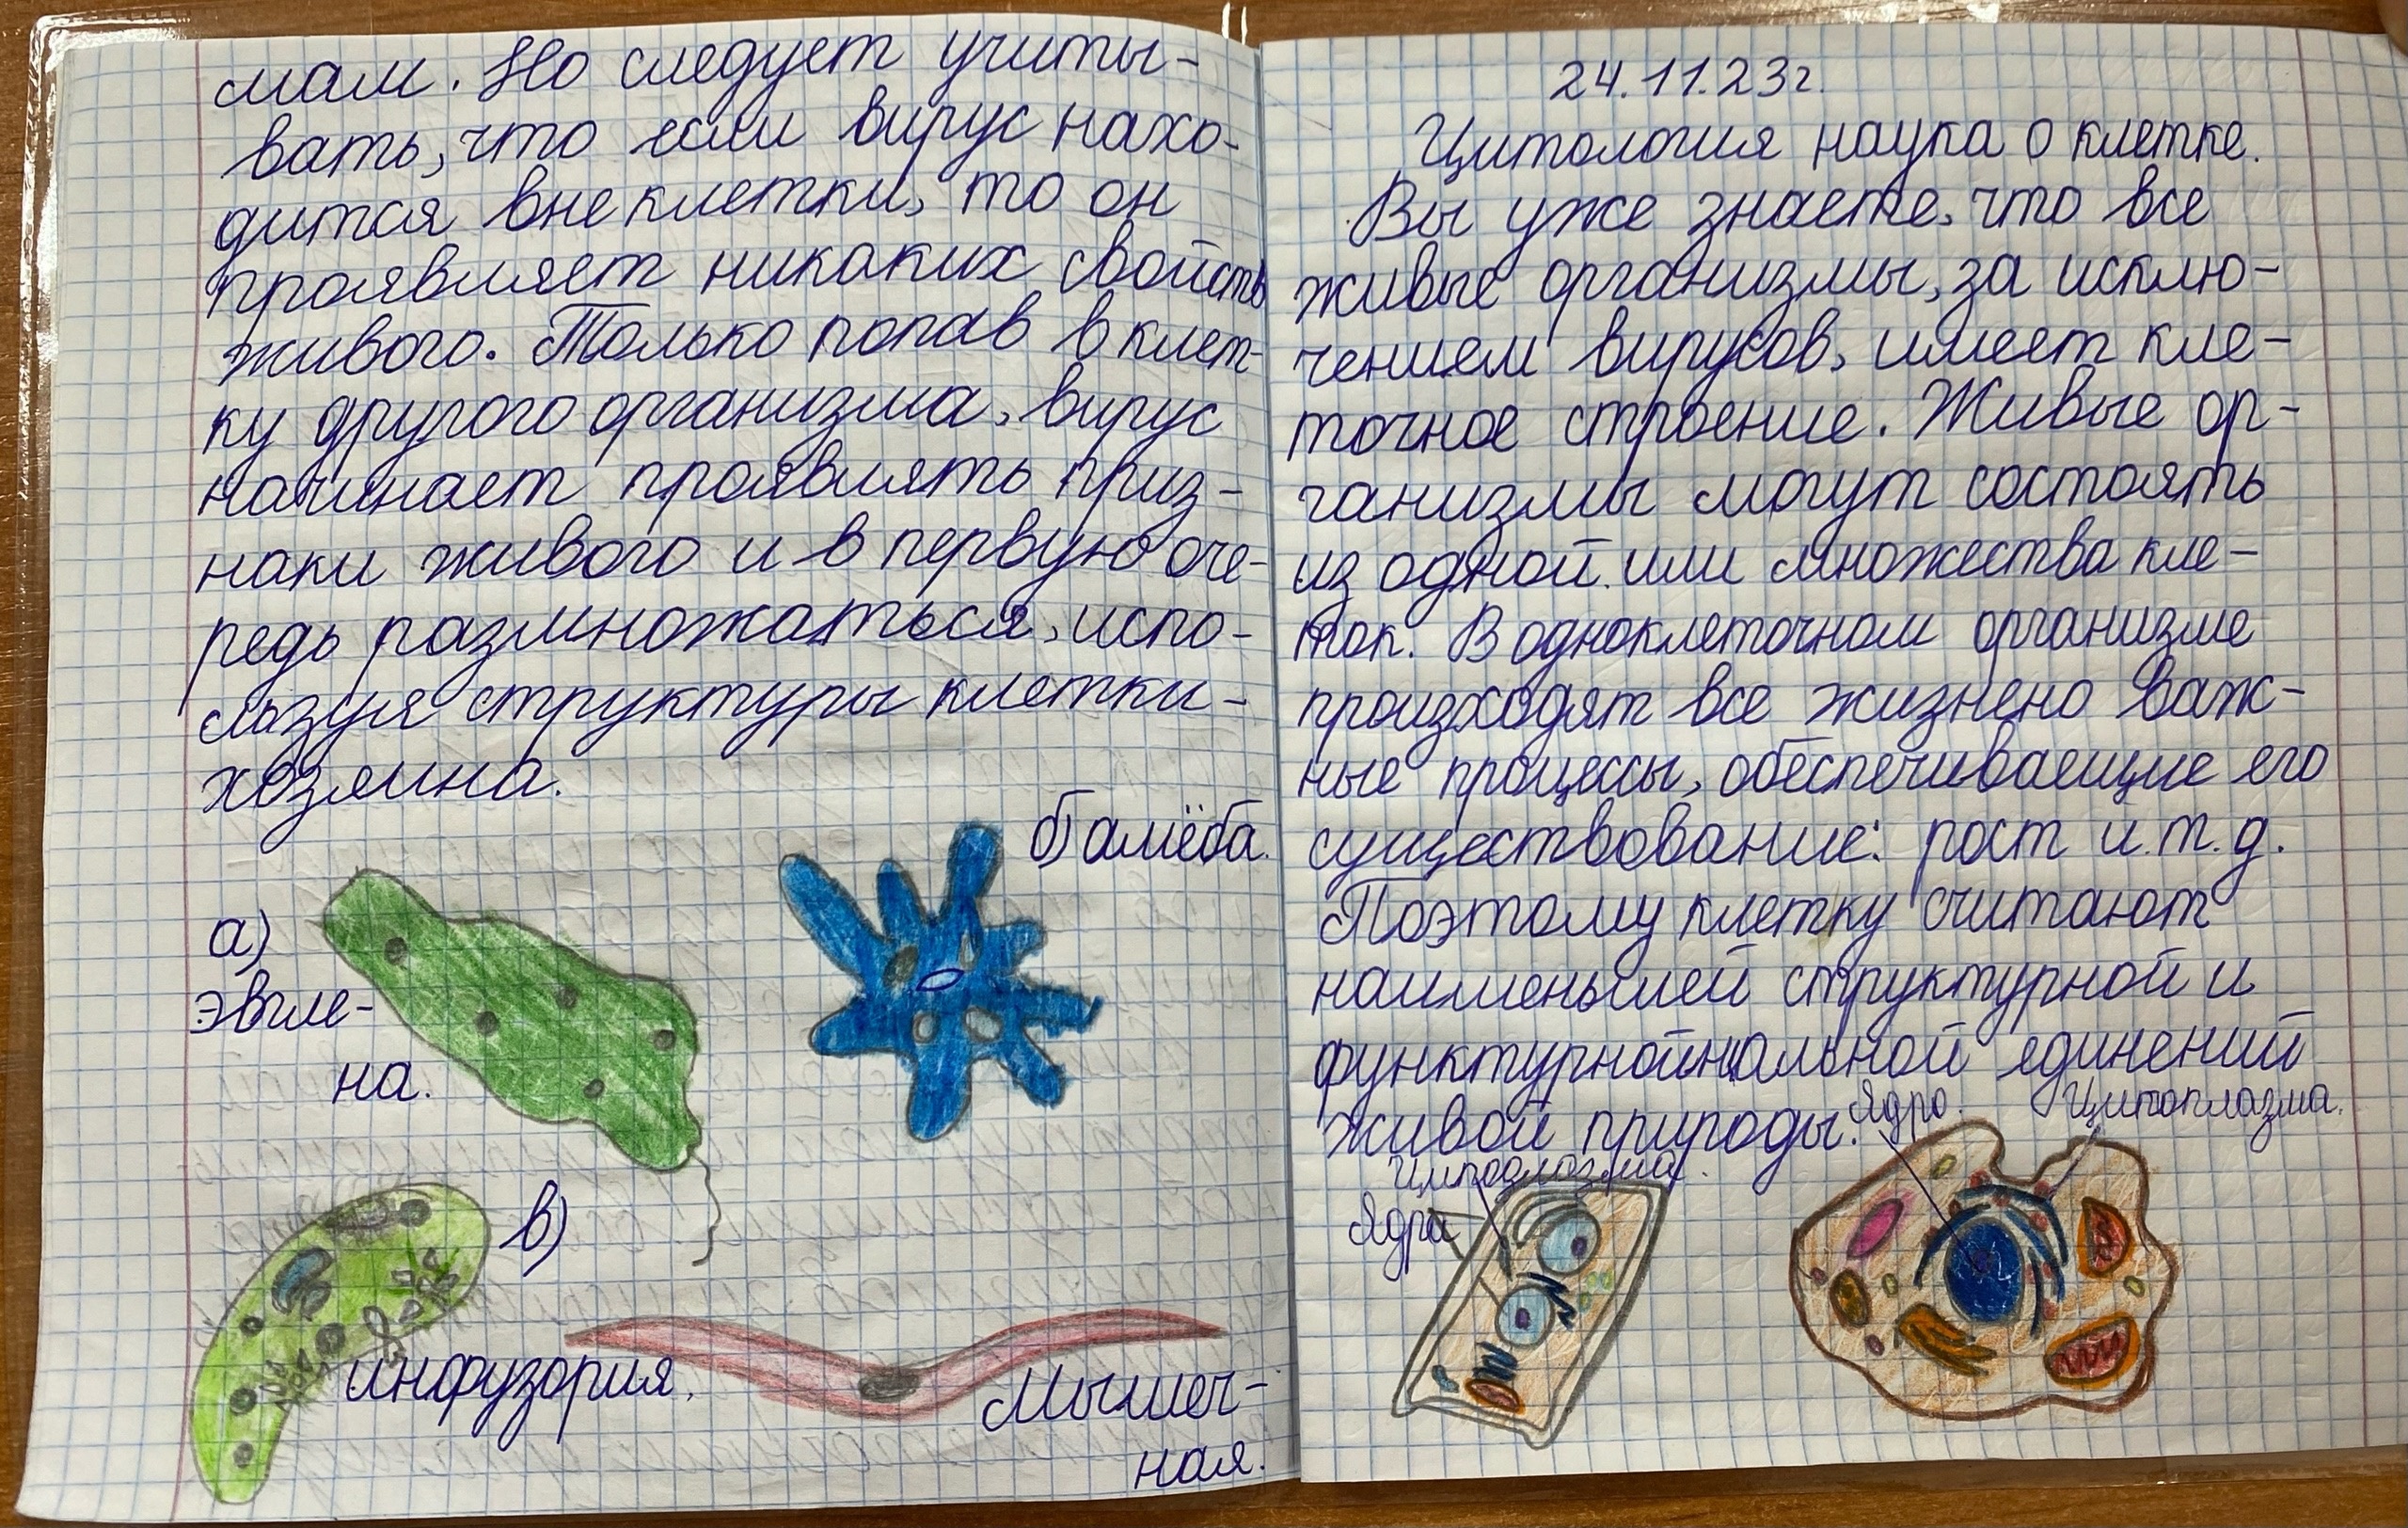 мам. Но следует учиты-
вать, что если вирус нахо-
дится вне клетки, то он
проявляет никаких свойств
живого. Только попав в клет-
ку другого организма, вирус
начинает проявлять приз-
наки живого и в первую оче-
редь размножаться, испо-
льзуя структуры клетки-
хозяина.
б) амёба.
а)
эвгле-
на.
в)
инфузория.
Мышеч-
ная.
24.11.23г.
Цитология наука о клетке.
Вы уже знаете, что все
живые организмы, за исклю-
чением вирусов, имеет кле-
точное строение. Живые ор-
ганизмы могут состоять
из одной или множества кле-
ток. В одноклеточном организме
произходят все жизнено важ-
ные процессы, обеспечиваещие его
существование: рост и.т.д.
Поэтому клетку считают
наименьшей структурной и
функтурнойнальной единений
живой природы.
Ядро.
Цитоплазма.
Цитоплазма.
Ядра